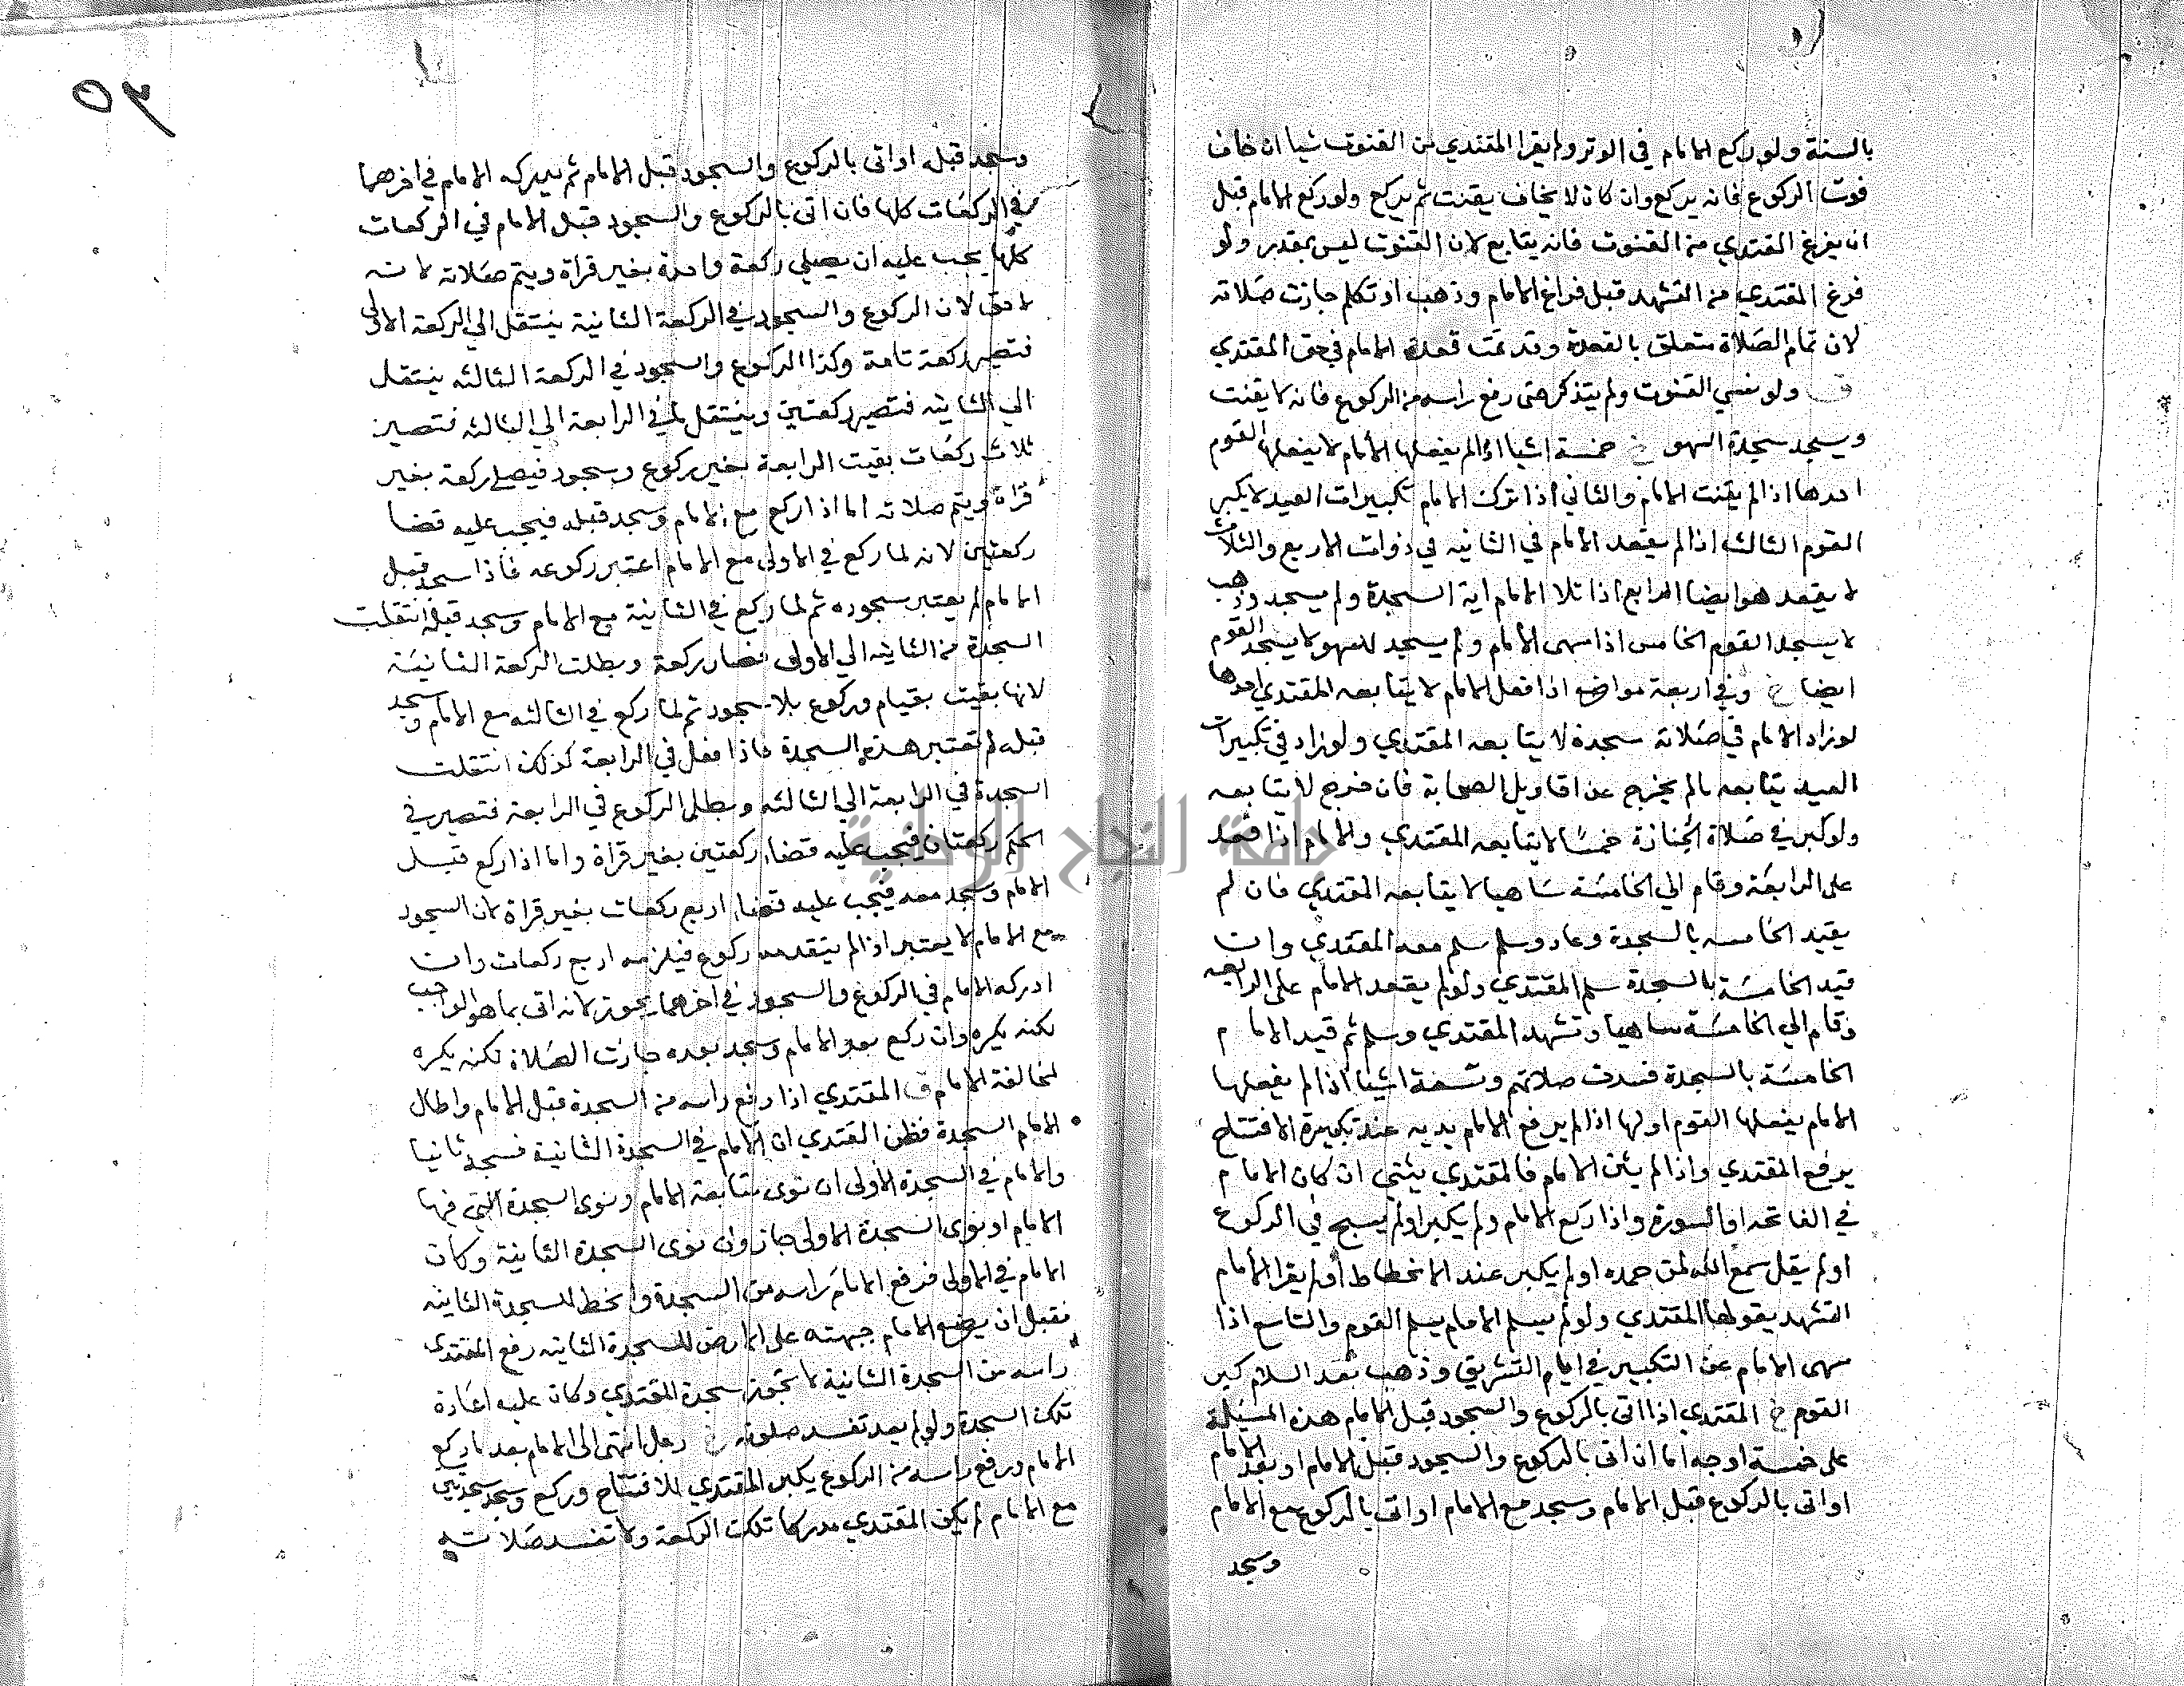 بالسنة ولو ركع الامام في الوتر ولم يقرا المقتدي من القنوت شيا ان خاف
فوت الركوع فانه يركع وان كان لا يخاف يقنت ثم يركع ولو ركع الامام قبل
ان يفرغ المقتدي من القنوت فانه يتابع لان القنوت ليس بمقدر ولو
فرغ المقتدي من التشهد قبل فراغ الامام وذهب او تكلم جازت صلاته
لان تمام الصلاة متعلق بالقعدة وقد تمت قعدة الامام في حق المقتدي
ق ولو نسي القنوت ولم يتذكر حتى رفع راسه من الركوع فانه لا يقنت
ويسجد سجدة السهو خ خمسة اشيا اذا لم يفعلها الامام لا يفعلها القوم
احدها اذا لم يقنت الامام والثاني اذا ترك الامام تكبيرات العيد لا يكبر
القوم الثالث اذا لم يقعد الامام في الثانيه في ذوات الاربع والثلاث
لا يقعد هو ايضا الرابع اذا تلا الامام اية السجدة ولم يسجد وذهب
لا يسجد القوم الخامس اذا سهى الامام ولم يسجد للسهو لا يسجد القوم
ايضا خ وفي اربعة مواضع اذا فعل الامام لا يتابعه المقتدي احدها
لو زاد الامام في صلاته سجدة لا يتابعه المقتدي ولو زاد في تكبيرات
العيد يتابعه مالم يخرج عن اقاويل الصحابة فان خرج لا يتابعه
ولو كبر في صلاة الجنازة خمسًا لا يتابعه المقتدي والامام اذا قعد
على الرابعة وقام الي الخامسة ساهيا لا يتابعه المقتدي فان لم
يقيد الخامسه بالسجدة وعاد وسلم سلم معه المقتدي وان
قيد الخامسة بالسجدة سلم المقتدي ولو لم يقعد الامام على الرابعه
وقام الي الخامسة ساهيا وتشهد المقتدي وسلم ثم قيد الامام
الخامسة بالسجدة فسدت صلاتهم وتسعة اشيا اذا لم يفعلها
الامام يفعلها القوم اولها اذا لم يرفع الامام يديه عند تكبيرة الافتتاح
يرفع المقتدي واذا لم يثن الامام فالمقتدي يثني ان كان الامام
في الفاتحه او السورة واذا ركع الامام ولم يكبر او لم يسبح في الركوع
او لم يقل سمع الله لمن حمده او لم يكبر عند الانحطاط او لم يقرا الامام
التشهد يقولها المقتدي ولو لم يسلم الامام يسلم القوم والتاسع اذا
سهى الامام عن التكبير في ايام التشريق وذهب بعد السلام كبر
القوم خ المقتدي اذا اتى بالركوع والسجود قبل الامام هذه المسئلة
على خمسة اوجه اما ان اتى بالركوع والسجود قبل الامام او بعد الامام
او اتى بالركوع قبل الامام وسجد مع الامام او اتى بالركوع مع الامام
وسجد
٥٣
وسجد قبله او اتى بالركوع والسجود قبل الامام ثم يدركه الامام في اخرهما
في الركعات كلها فان اتى بالركوع والسجود قبل الامام في الركعات
كلها يجب عليه ان يصلي ركعة واحدة بغير قراة ويتم صلاته لانه
لاحق لان الركوع والسجود في الركعة الثانية ينتقل الي الركعة الاولى
فتصير ركعة تامة وكذا الركوع والسجود في الركعة الثالثه ينتقل
الي الثانيه فتصير ركعتين وينتقل في الرابعة الي الثالثه فتصير
ثلاث ركعات بقيت الرابعة بغير ركوع وسجود فيصلي ركعة بغير
قراة ويتم صلاته اما اذا ركع مع الامام وسجد قبله فيجب عليه قضا
ركعتين لانه لما ركع في الاولى مع الامام اعتبر ركوعه فاذا سجد قبل
الامام لم يعتبر سجوده ثم لما ركع في الثانية مع الامام وسجد قبله انتقلت
السجدة من الثانيه الي الاولى فصار ركعة وبطلت الركعة الثانية
لانها بقيت بقيام وركوع بلا سجود ثم لما ركع في الثالثه مع الامام وسجد
قبله لم تعتبر هذه السجدة فاذا فعل في الرابعة كذلك انتقلت
السجدة في الرابعة الي الثالثه وبطل الركوع في الرابعة فتصير في
الحكم ركعتان فيجب عليه قضا ركعتين بغير قراة واما اذا ركع قبل
الامام وسجد معه فيجب عليه قضا اربع ركعات بغير قراة لان السجود
مع الامام لا يعتبر اذا لم يتقدمه ركوع فيلزمه اربع ركعات وان
ادركه الامام في الركوع والسجود في اخرهما يجوز لانه اتى بما هو الواجب
لكنه يكره وان ركع بعد الامام وسجد بعده جازت الصلاة لكنه يكره
لمخالفة الامام ق المقتدي اذا رفع راسه من السجدة قبل الامام واطال
الامام السجدة فظن المقتدي ان الامام في السجدة الثانية فسجد ثانيا
والامام في السجدة الاولى ان نوى متابعة الامام ونوى السجدة التي فيها
الامام او نوى السجدة الاولى جاز وان نوى السجدة الثانية وكان
الامام في الاولى فرفع الامام راسه من السجدة وانحط للسجدة الثانيه
فقبل ان يضع الامام جبهته على الارض للسجدة الثانيه رفع المقتدي
راسه من السجدة الثانية لا تجوز سجدة المقتدي وكان عليه اعادة
تلك السجدة ولو لم يعد تفسد صلوته خ رجل انتهى الى الامام بعد ما ركع
الامام ورفع راسه من الركوع يكبر المقتدي للافتتاح وركع وسجد سجدتين
مع الامام لم يكن المقتدي مدركا تلك الركعة ولا تفسد صلاته
جامعة النجاح الوطنية